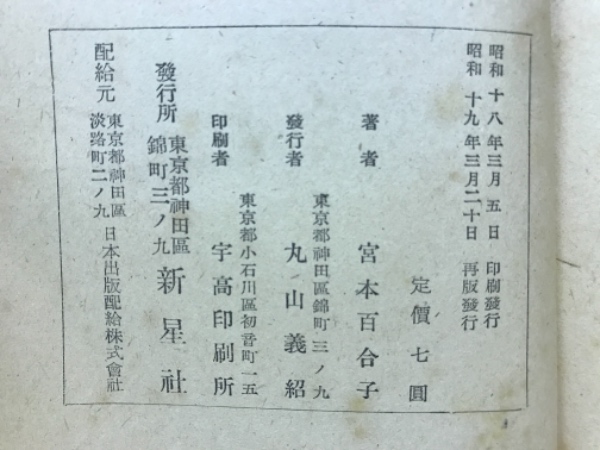 昭和十八年三月五日 印刷發行
昭和十九年三月二十日 再版發行
定價七圓
著者 宮本百合子
東京都神田區錦町三ノ九
發行者 丸山義紹
東京都小石川區初音町一五
印刷者 宇高印刷所
發行所 東京都神田區錦町三ノ九 新星社
配給元 東京都神田區淡路町二ノ九 日本出版配給株式會社